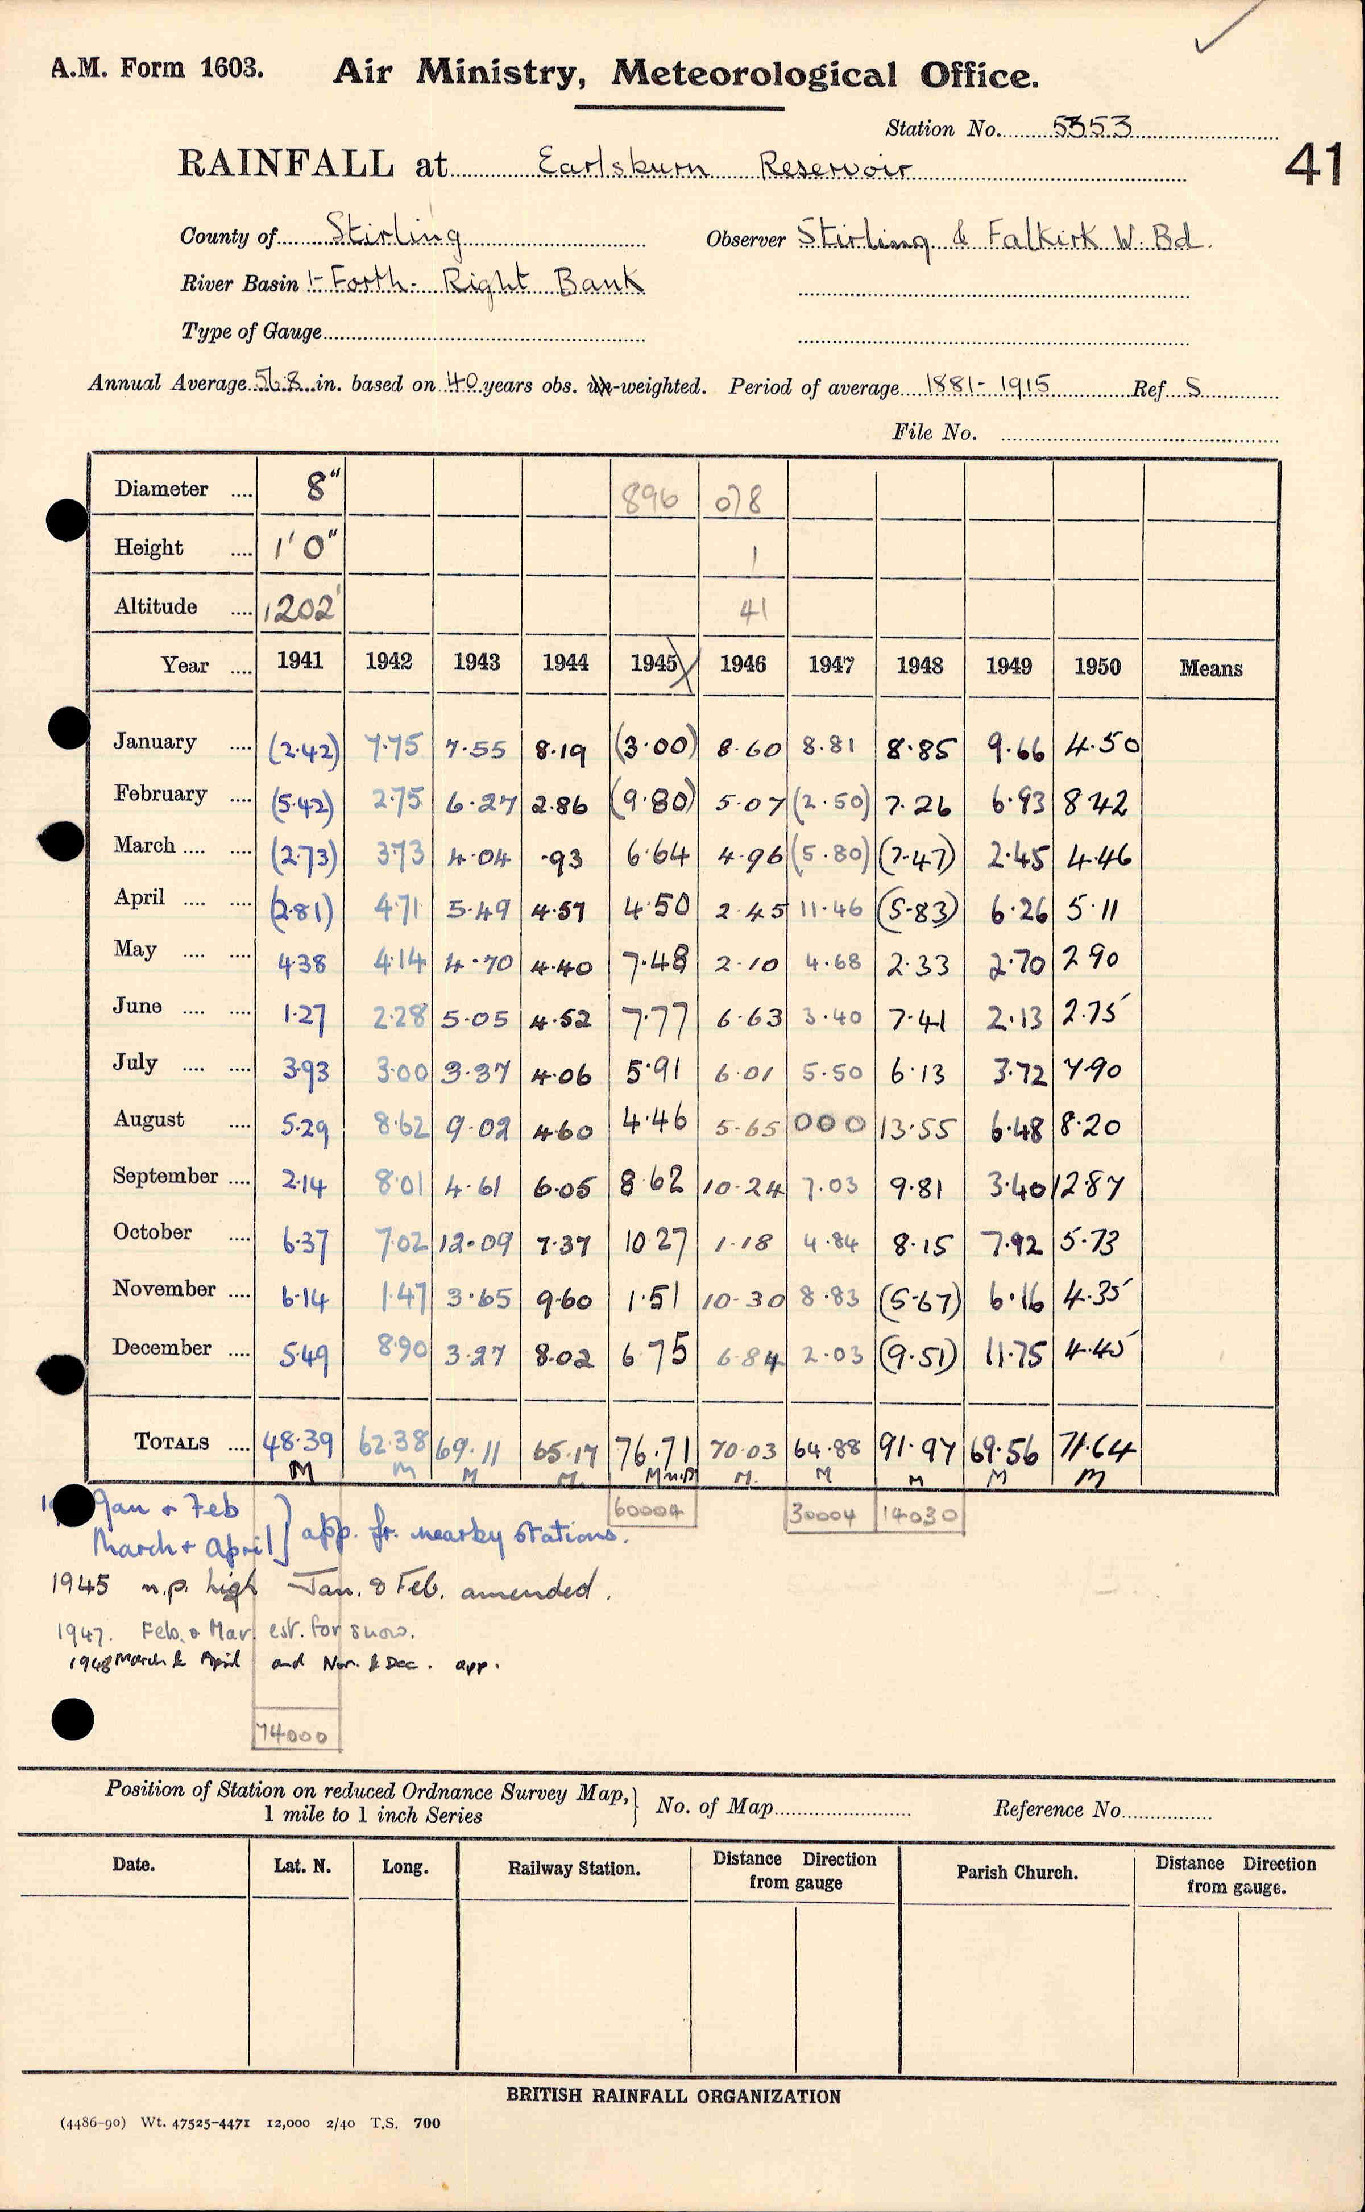 A.M. Form 1603. Air Ministry, Meteorological Office.
Station No. 5353
41
RAINFALL at Earlsburn Reservoir
County of Stirling Observer Stirling & Falkirk W. Bd.
River Basin Forth - Right Bank
Type of Gauge
Annual Average 56.8 in. based on 40 years obs. -weighted. Period of average 1881-1915 Ref S
File No.
Diameter .... 8" 896 078
Height .... 1' 0" 1
Altitude .... 1202' 41
Year .... 1941 1942 1943 1944 1945 1946 1947 1948 1949 1950 Means
January .... (2.42) 7.75 7.55 8.19 (3.00) 8.60 8.81 8.85 9.66 4.50
February .... (5.42) 2.75 6.27 2.86 (9.80) 5.07 (2.50) 7.26 6.93 8.42
March .... .... (2.73) 3.73 4.04 .93 6.64 4.96 (5.80) (7.47) 2.45 4.46
April .... .... (2.81) 4.71 5.49 4.57 4.50 2.45 11.46 (5.83) 6.26 5.11
May .... .... 4.38 4.14 4.70 4.40 7.48 2.10 4.68 2.33 2.70 2.90
June .... .... 1.27 2.28 5.05 4.52 7.77 6.63 3.40 7.41 2.13 2.75
July .... .... 3.93 3.00 3.37 4.06 5.91 6.01 5.50 6.13 3.72 7.90
August .... 5.29 8.62 9.02 4.60 4.46 5.65 000 13.55 6.48 8.20
September .... 2.14 8.01 4.61 6.05 8.62 10.24 7.03 9.81 3.40 12.87
October .... 6.37 7.02 12.09 7.37 10.27 1.18 4.84 8.15 7.92 5.73
November .... 6.14 1.47 3.65 9.60 1.51 10.30 8.83 (5.67) 6.16 4.35
December .... 5.49 8.90 3.27 8.02 6.75 6.84 2.03 (9.51) 11.75 4.45
TOTALS .... 48.39 62.38 69.11 65.17 76.71 70.03 64.88 91.97 69.56 71.64
M M M M M n.p. M. M M M M
60004 30004 14030
Jan & Feb
March & April } app. fr. nearby stations.
1945 n.p. high Jan. & Feb. amended.
1947. Feb. & Mar. est. for snow.
1948 March & April and Nov. & Dec. app.
74000
Position of Station on reduced Ordnance Survey Map, } No. of Map Reference No.
1 mile to 1 inch Series
Date. Lat. N. Long. Railway Station. Distance Direction from gauge Parish Church. Distance Direction from gauge.
BRITISH RAINFALL ORGANIZATION
(4486-90) Wt. 47525-4471 12,000 2/40 T.S. 700